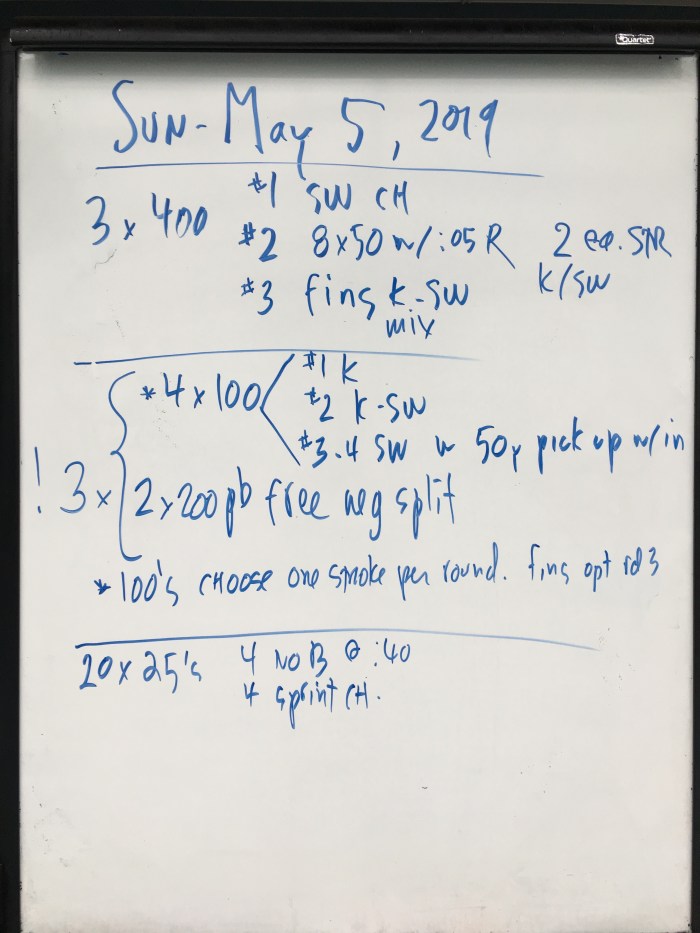 Quartet
Sun - May 5, 2019
3 x 400 #1 SW CH
#2 8x50 w/ :05 R 2 ea. STR
k/sw
#3 fins k-sw
mix
! 3 x
*4 x 100 #1 k
#2 k-sw
#3.4 SW w 50y pick up w/in
2 x 200 pb free neg split
*100's CHOOSE one stroke per round. fins opt rd 3
20 x 25's 4 No B @ :40
4 sprint CH.